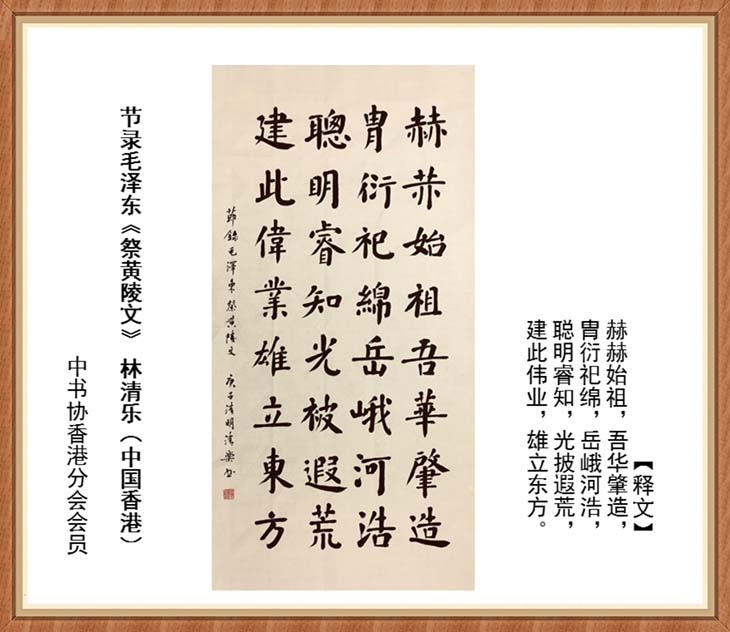 【释文】
赫赫始祖，吾华肇造，
胄衍祀绵，岳峨河浩，
聪明睿知，光披遐荒，
建此伟业，雄立东方。
赫赫始祖吾華肇造
胄衍祀綿岳峨河浩
聰明睿知光被遐荒
建此偉業雄立東方
節錄毛澤東祭黃陵文 庚子清明清樂書
节录毛泽东《祭黄陵文》 林清乐（中国香港）
中书协香港分会会员